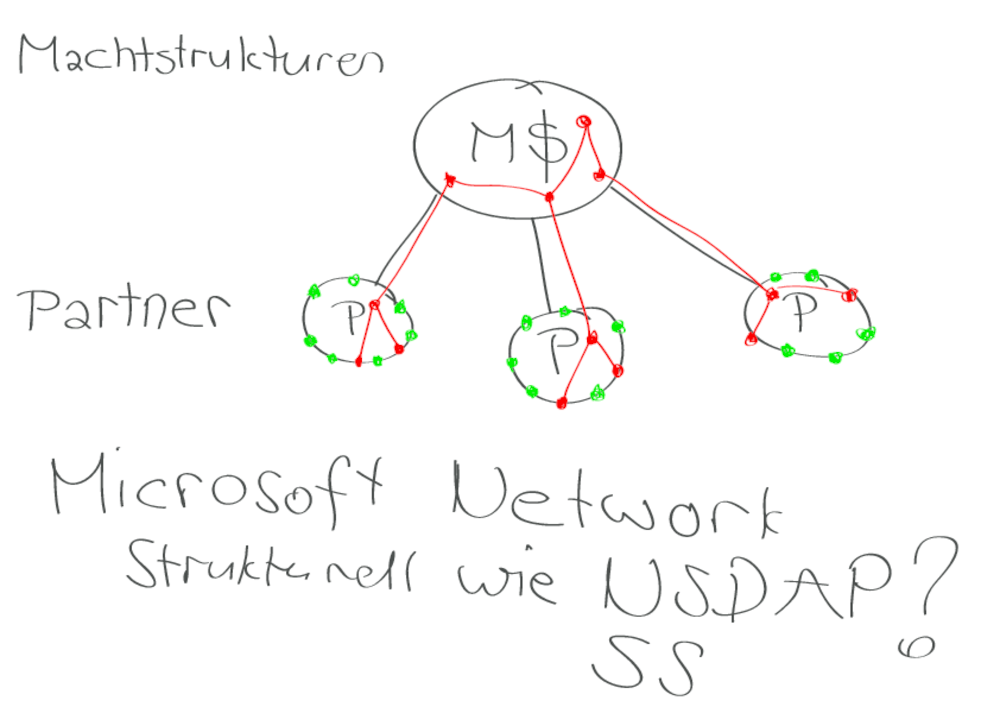 Machtstrukturen
M$
Partner
P
P
P
Microsoft Network
Strukturell wie NSDAP?
SS